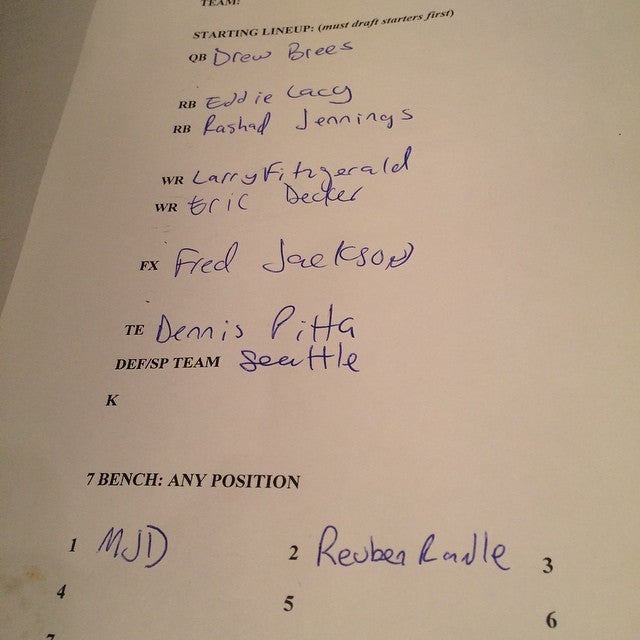 TEAM:
STARTING LINEUP: (must draft starters first)
QB Drew Brees
RB Eddie Lacy
RB Rashad Jennings
WR Larry Fitzgerald
WR Eric Decker
FX Fred Jackson
TE Dennis Pitta
DEF/SP TEAM Seattle
K
7 BENCH: ANY POSITION
1 MJD 2 Reuben Randle 3
4 5 6
7